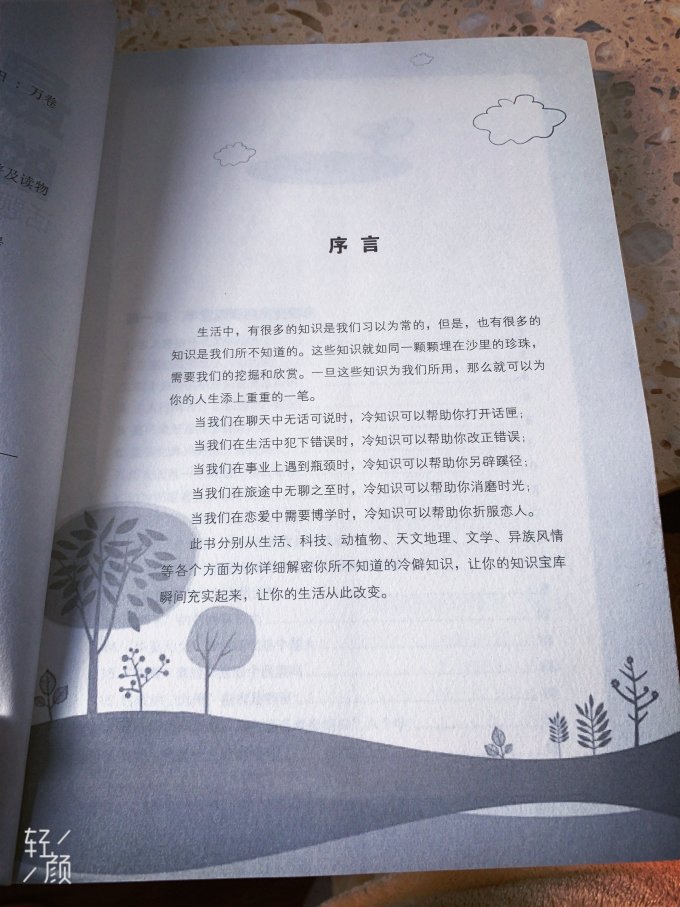 ：万卷
及读物
序言
生活中，有很多的知识是我们习以为常的，但是，也有很多的
知识是我们所不知道的。这些知识就如同一颗颗埋在沙里的珍珠，
需要我们的挖掘和欣赏。一旦这些知识为我们所用，那么就可以为
你的人生添上重重的一笔。
当我们在聊天中无话可说时，冷知识可以帮助你打开话匣；
当我们在生活中犯下错误时，冷知识可以帮助你改正错误；
当我们在事业上遇到瓶颈时，冷知识可以帮助你另辟蹊径；
当我们在旅途中无聊之至时，冷知识可以帮助你消磨时光；
当我们在恋爱中需要博学时，冷知识可以帮助你折服恋人。
此书分别从生活、科技、动植物、天文地理、文学、异族风情
等各个方面为你详细解密你所不知道的冷僻知识，让你的知识宝库
瞬间充实起来，让你的生活从此改变。
轻颜